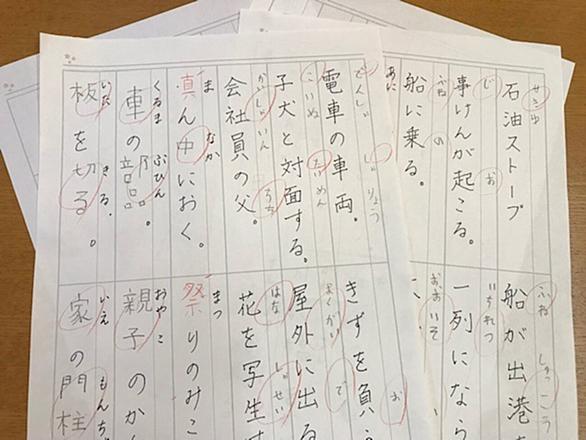 せきゆ
石油ストーブ
じ お
事けんが起こる。
ふね の
船に乗る。
あに
ふね しゅっこう
船が出港
いちれつ
一列になら
おおいそ
でんしゃ しゃりょう
電車の車両。
こいぬ たいめん
子犬と対面する。
かいしゃいん ちち
会社員の父。
ま なか
真ん中におく。
くるま ぶひん
車の部品。
いた きる.
板を切る。
お
きずを負
おくがい で
屋外に出る
はな しゃせい
花を写生
まつ
祭りのみこ
おやこ
親子のか
いえ もんち
家の門柱